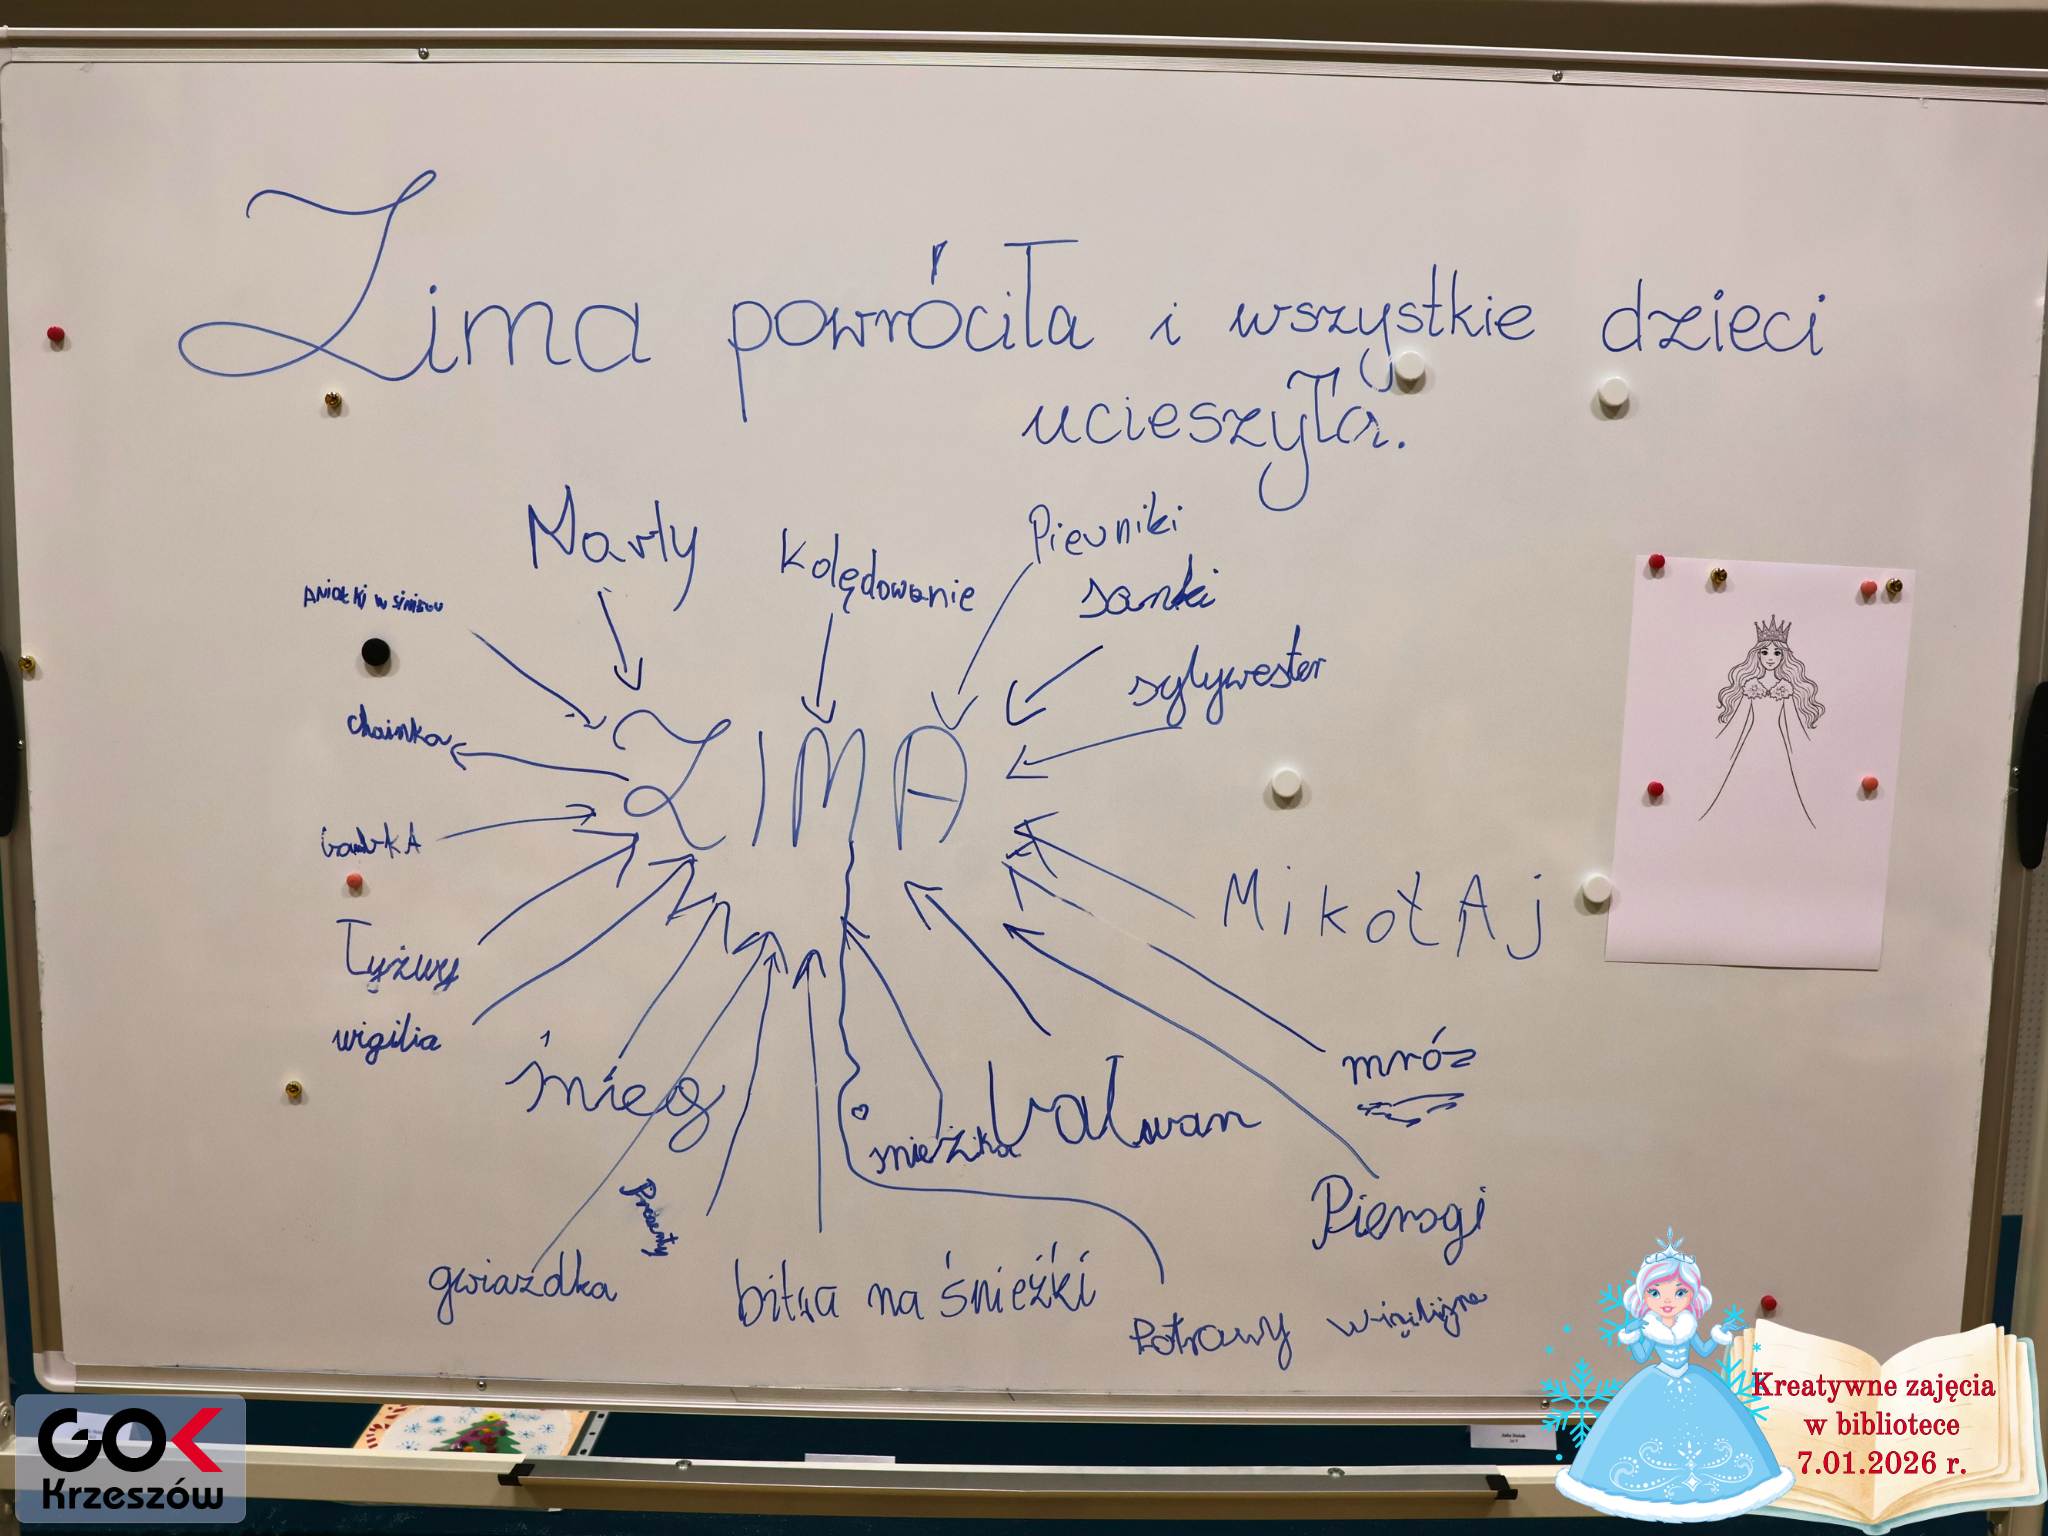 Zima powróciła i wszystkie dzieci
ucieszyła.
Narty
Kolędowanie
Pieuniki
sanki
sylywester
choinka
ZIMA
bombKA
MikołAj
Łyżwy
wigilia
śnieg
śnieżka
bałwan
mróz
Prezenty
Pierogi
gwiazdka
bitwa na śnieżki
Potrawy wigilijne
GOK
Krzeszów
Kreatywne zajęcia
w bibliotece
7.01.2026 r.